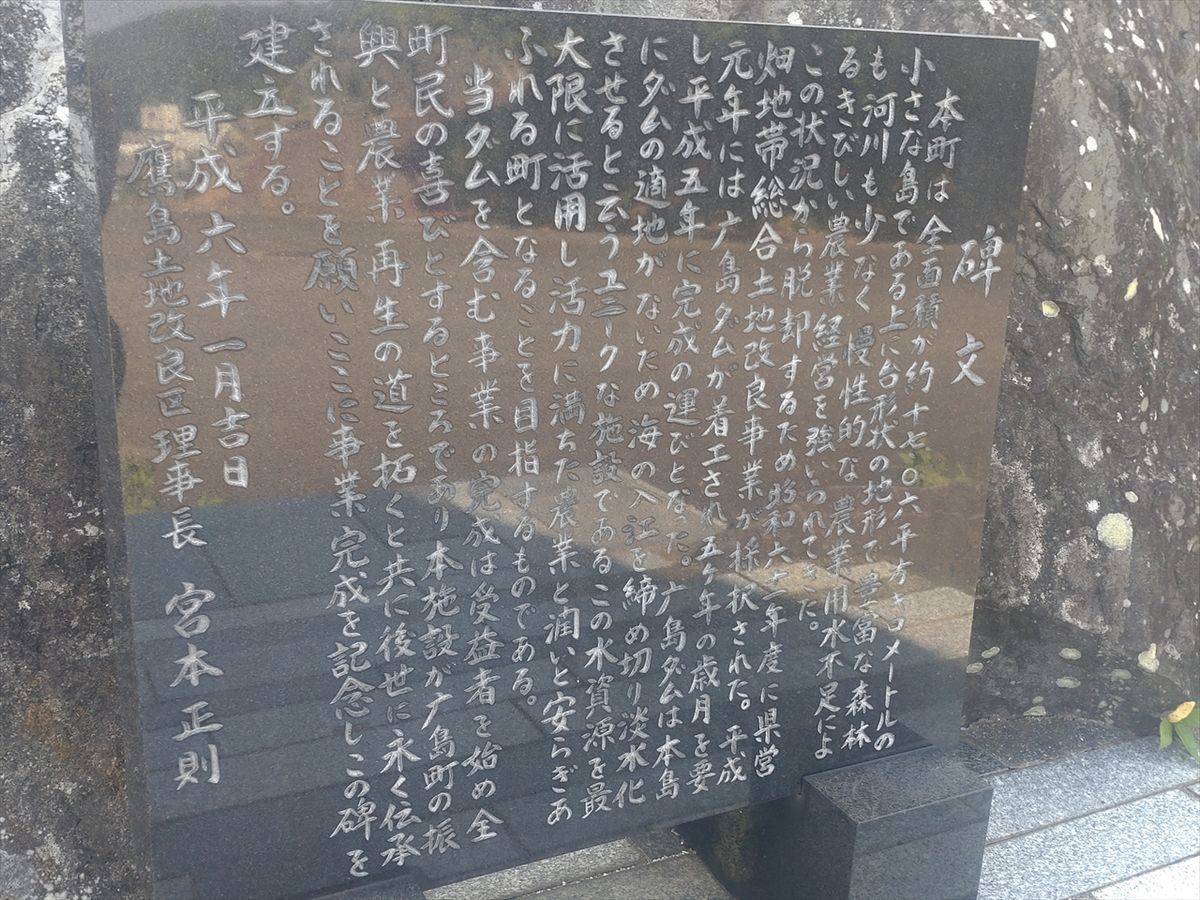 碑文
本町は全面積が約十七・〇六平方キロメートルの
小さな島である上に台形状の地形で豊富な森林
も河川も少なく慢性的な農業用水不足によ
るきびしい農業経営を強いられてきた。
この状況から脱却するため昭和六十一年度に県営
畑地帯総合土地改良事業が採択された。平成
元年には广島ダムが着工され五ケ年の歳月を要
し平成五年に完成の運びとなった。广島ダムは本島
にダムの適地がないため海の入江を締め切り淡水化
させると云うユニークな施設であるこの水資源を最
大限に活用し活力に満ちた農業と潤いと安らぎあ
ふれる町となることを目指すものである。
当ダムを含む事業の完成は受益者を始め全
町民の喜びとするところであり本施設が广島町の振
興と農業再生の道を拓くと共に後世に永く伝承
されることを願いここに事業完成を記念しこの碑を
建立する。
平成六年一月吉日
鷹島土地改良区理事長 宮本正則